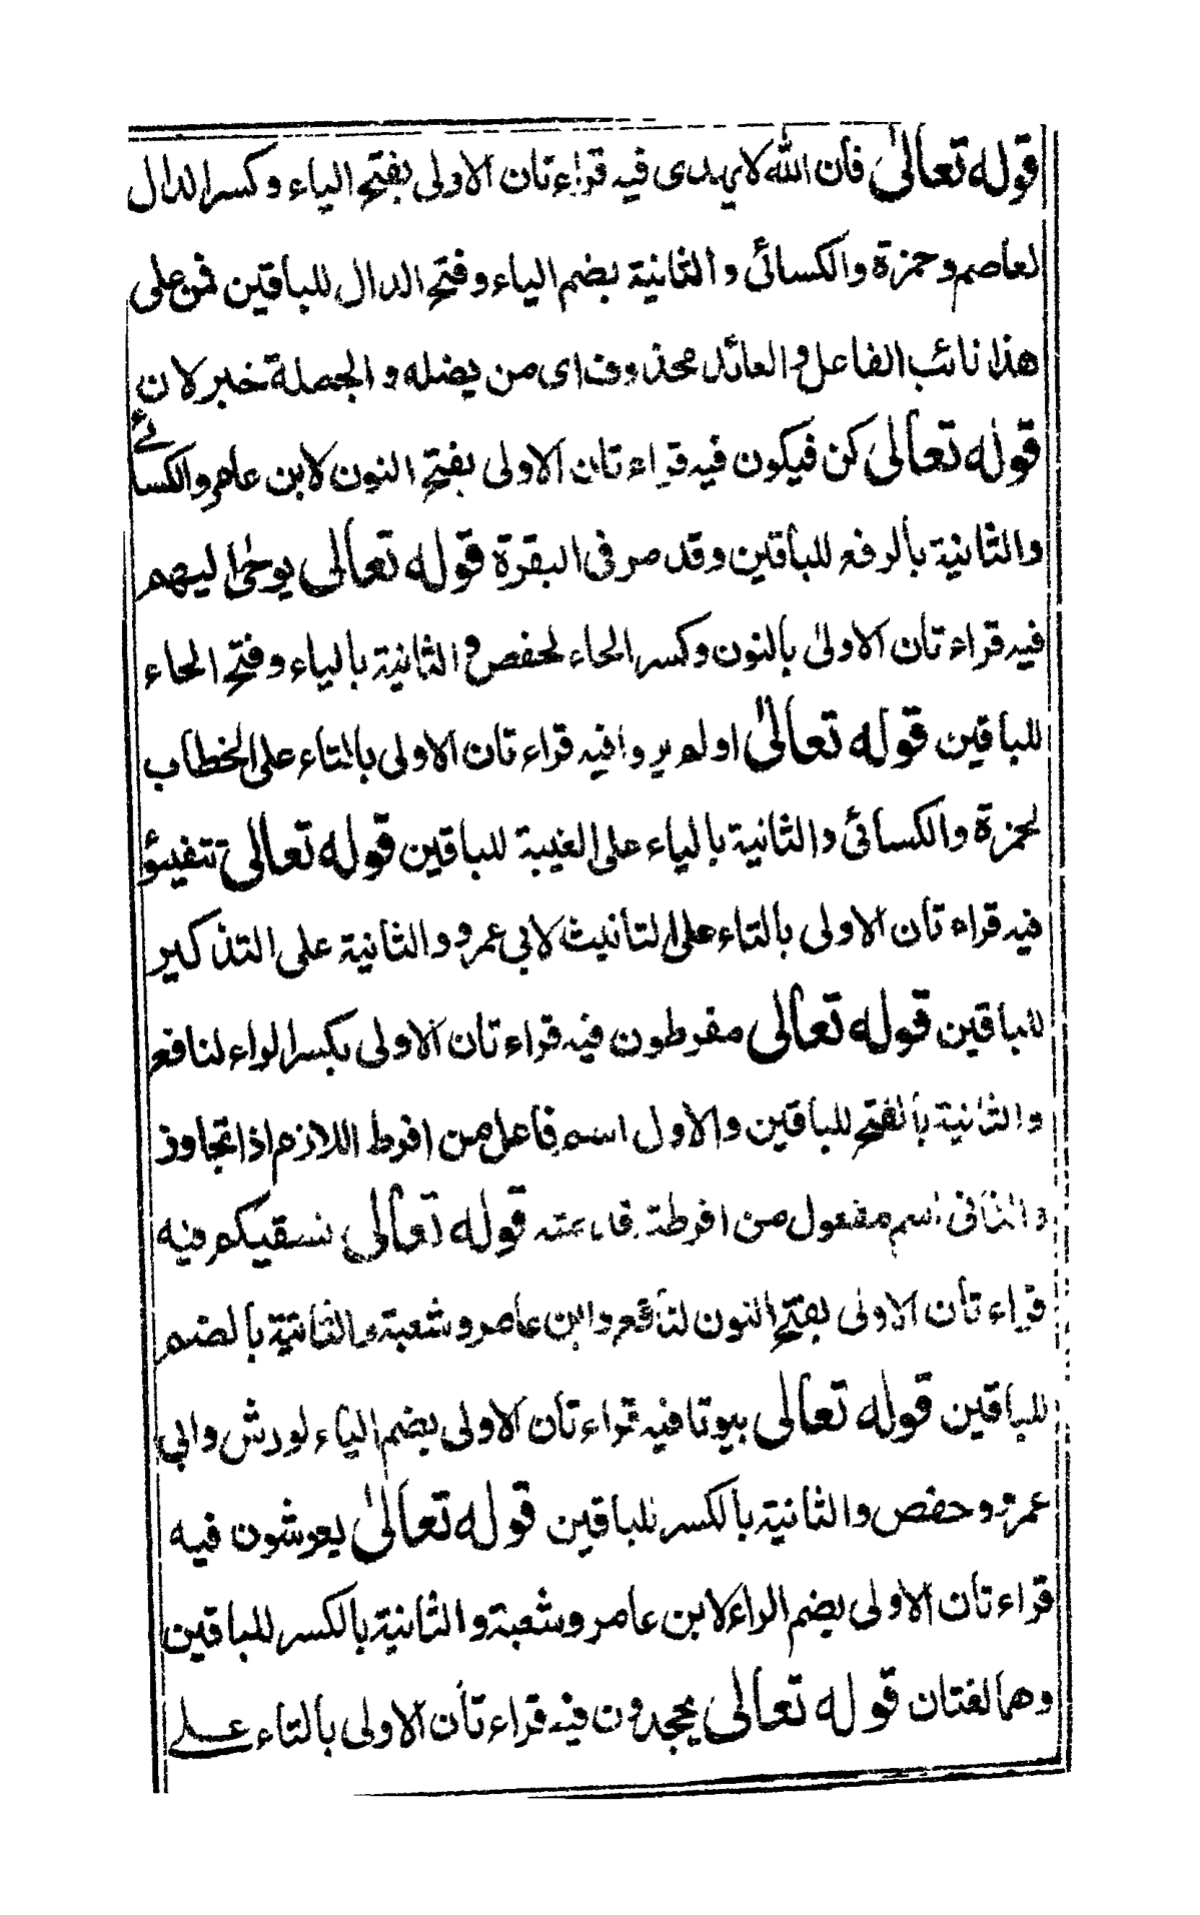 قوله تعالىٰ فان الله لا يهدى فيه قراءتان الاولى بفتح الياء وكسر الدال
لعاصم وحمزة والكسائى والثانية بضم الياء وفتح الدال للباقين فمن على
هذا نائب الفاعل والعائد محذوف اى من يضله والجملة خبر لان
قوله تعالىٰ كن فيكون فيه قراءتان الاولى بفتح النون لابن عامر والكسائے
والثانية بالرفع للباقين وقد مر فى البقرة قوله تعالى يوحىٰ اليهم
فيه قراءتان الاولىٰ بالنون وكسر الحاء لحفص والثانية بالياء وفتح الحاء
للباقين قوله تعالىٰ اولم يروا فيه قراءتان الاولى بالتاء على الخطاب
لحمزة والكسائى والثانية بالياء على الغيبة للباقين قوله تعالى تتفيئو
فيه قراءتان الاولى بالتاء على التانيث لابى عمرو والثانية على التذكير
للباقين قوله تعالى مفرطون فيه قراءتان الاولى بكسر الراء لنافع
والثانية بالفتح للباقين والاول اسم فاعل من افرط اللازم اذا تجاوز
والثانى اسم مفعول من افرطته قوله تعالى نسقيكم فيه
قراءتان الاولى بفتح النون لنافع وابن عامر وشعبة والثانية بالضم
للباقين قوله تعالى بيوتا فيه قراءتان الاولى بضم الياء لورش وابى
عمرو وحفص والثانية بالكسر للباقين قوله تعالىٰ يعرشون فيه
قراءتان الاولى بضم الراء لابن عامر وشعبة والثانية بالكسر للباقين
وهما لغتان قوله تعالىٰ يجحدون فيه قراءتان الاولى بالتاء علے